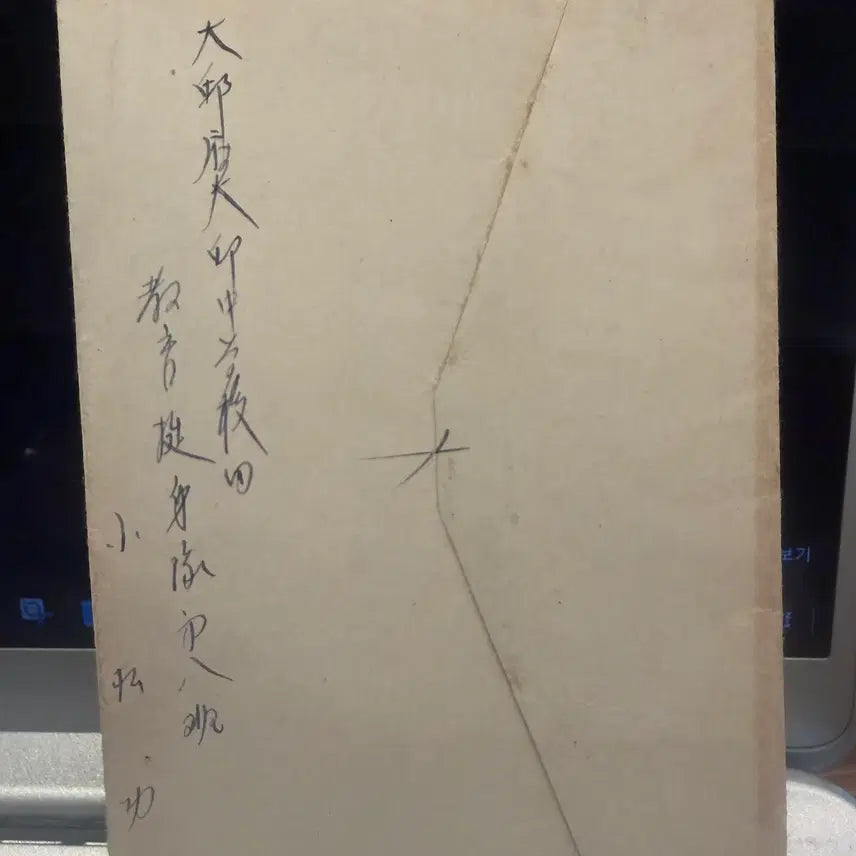 大邱府大邱中学校内
教育挺身隊第八班
小松功
보기